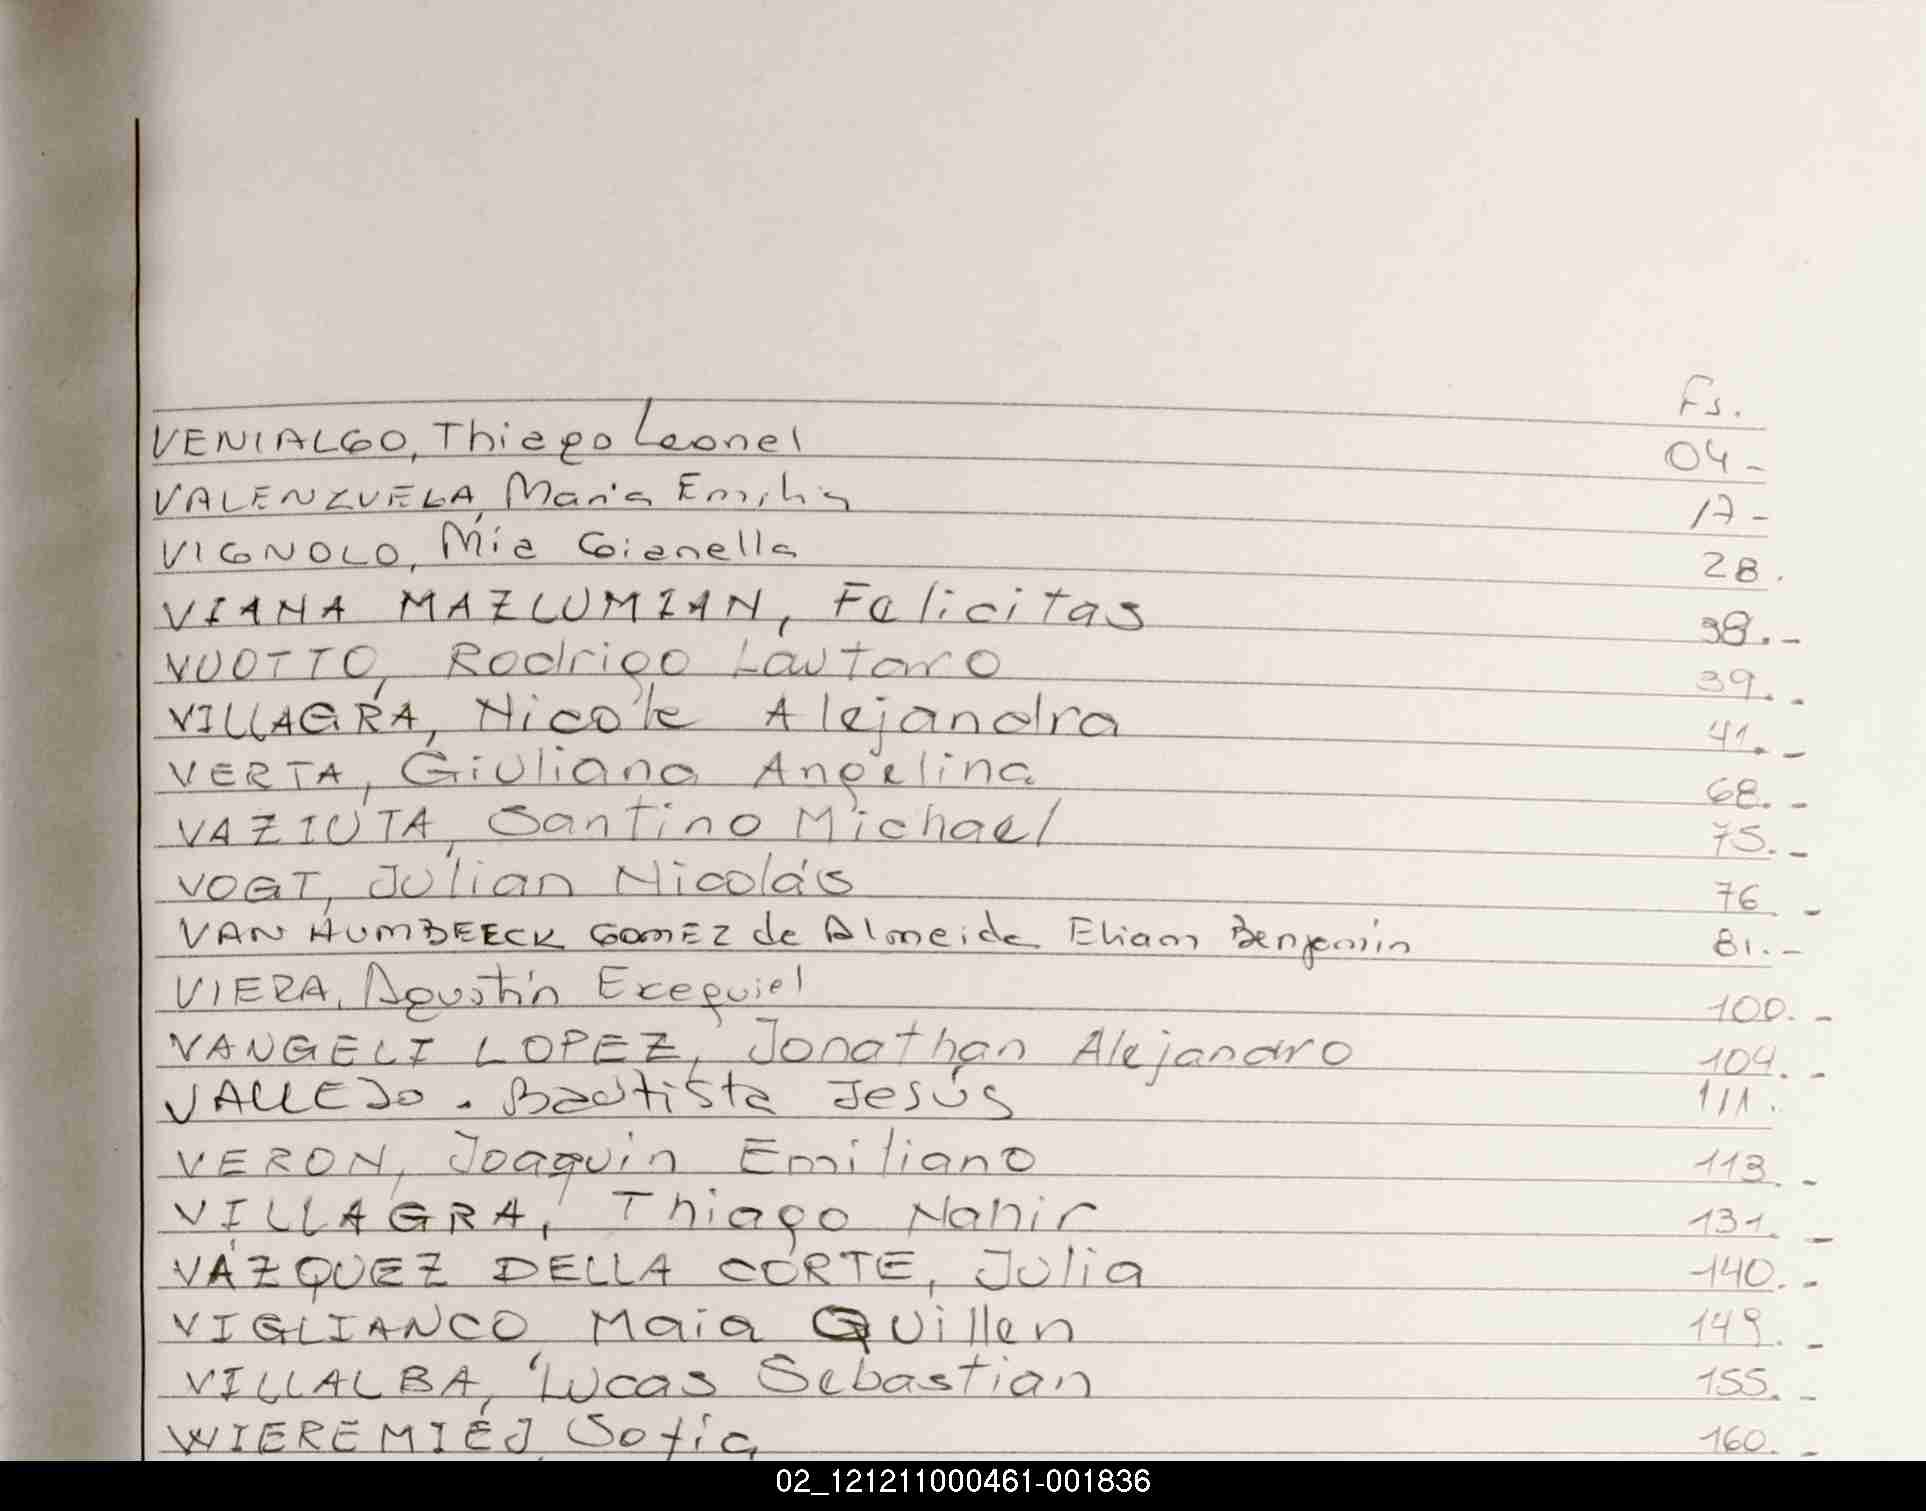 Fs.
VENIALGO, Thiago Leonel 04-
VALENZUELA, María Emilia 17-
VIGNOLO, Mía Gianella 28.
VIANA MAZLUMIAN, Felicitas 38.-
VUOTTO, Rodrigo Lautaro 39.-
VILLAGRA, Nicole Alejandra 41.-
VERTA, Giuliana Angelina 68.-
VAZIUTA, Santino Michael 75.-
VOGT, Julian Nicolás 76.-
VAN HUMBEECK GOMEZ de Almeida Eliam Benjamín 81.-
VIERA, Agustín Exequiel 100.-
VANGELI LOPEZ, Jonathan Alejandro 104.-
VALLEJO. Bautista Jesús 111.
VERON, Joaquin Emiliano 113.-
VILLAGRA, Thiago Nahir 131.-
VÁZQUEZ DELLA CORTE, Julia 140.-
VIGLIANCO, Maia Quillen 149.-
VILLALBA, Lucas Sebastian 155.-
WIEREMIEJ, Sofia 160.-
02_121211000461-001836